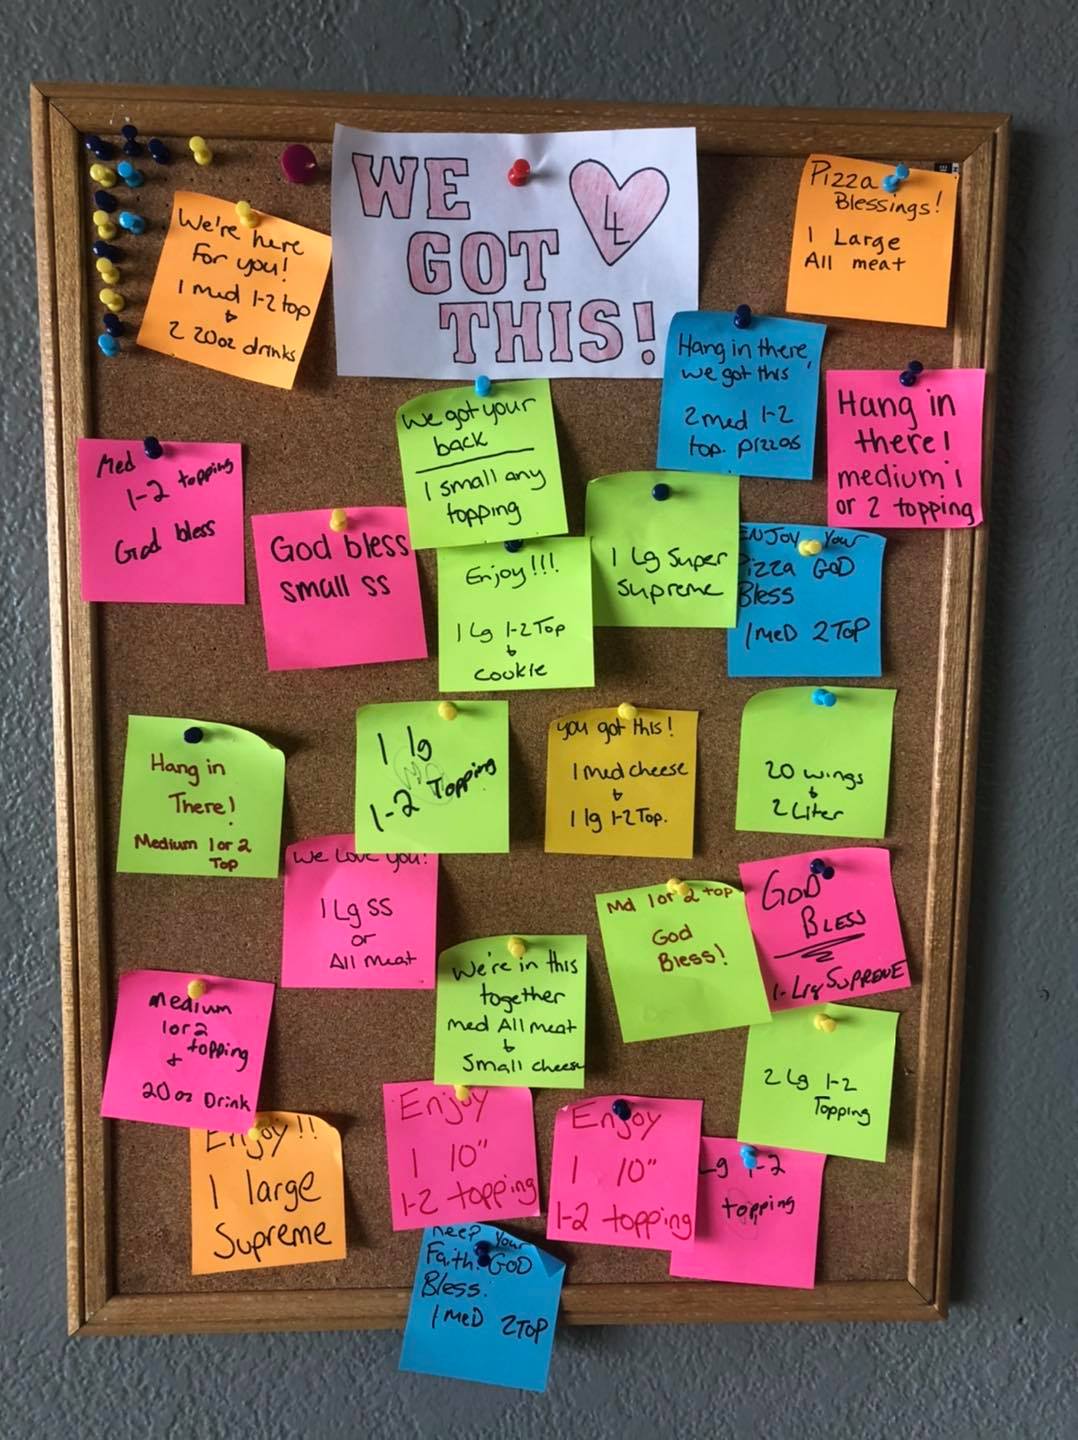 WE
GOT
THIS!
4
Pizza
Blessings!
1 Large
All meat
We're here
For you!
1 med 1-2 top
&
2 20oz drinks
Hang in there,
we got this
2 med 1-2
top. pizzas
Hang in
there!
medium 1
or 2 topping
We got your
back
1 small any
topping
Med
1-2 topping
God bless
God bless
small ss
Enjoy!!!
1 Lg 1-2 Top
&
cookie
1 Lg Super
Supreme
ENJOY Your
Pizza GOD
Bless
1 MeD 2 Top
Hang in
There!
Medium 1 or 2
Top
1 lg
1-2 Topping
you got this!
1 med cheese
&
1 lg 1-2 Top.
20 wings
&
2 Liter
We Love you!
1 Lg SS
or
All meat
Md 1 or 2 top
God
Bless!
GOD
BLESS
1-Lrg SUPREME
We're in this
together
med All meat
&
Small cheese
medium
1 or 2
topping
&
20 oz Drink
2 Lg 1-2
Topping
Enjoy!!
1 large
Supreme
Enjoy
1 10"
1-2 topping
Enjoy
1 10"
1-2 topping
Lg 1-2
topping
Keep Your
Faith. GOD
Bless.
1 MeD 2 TOP